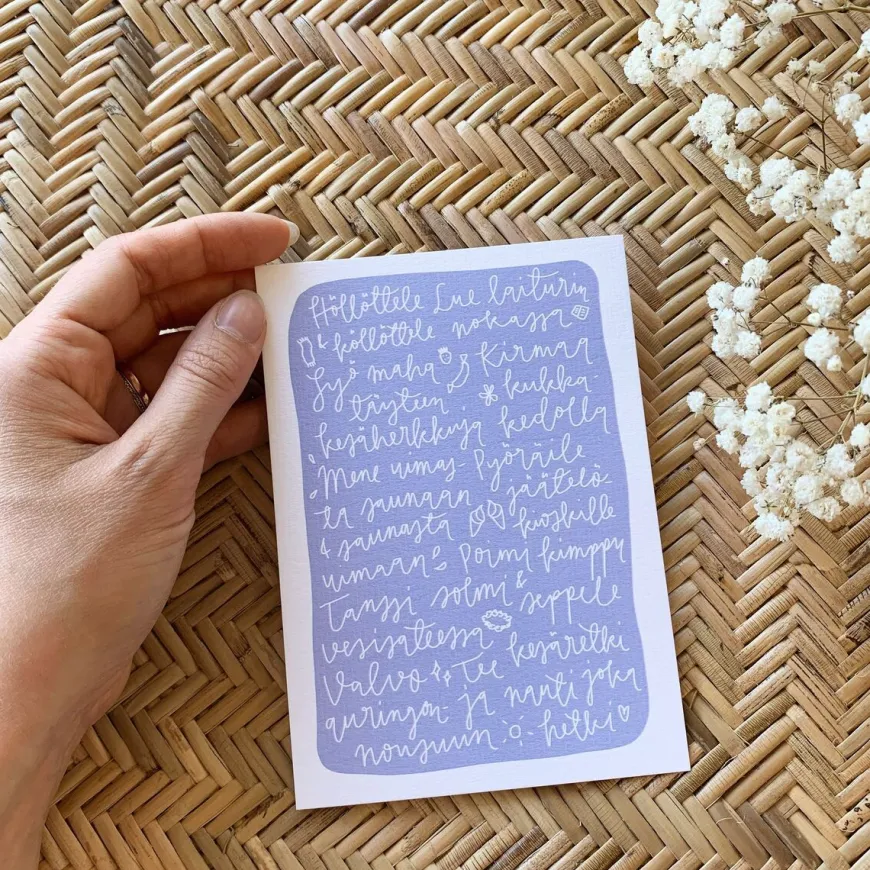 Höllöttele
& köllöttele
Syö maha
täyteen
kesäherkkuja
Mene uimas-
ta saunaan
& saunasta
uimaan
Tanssi
vesisateessa
Valvo
auringon-
nousuun
Lue laiturin
nokassa
Kirmaa
kukka-
kedolla
Pyöräile
jäätelö-
kioskille
Poimi kimppu
solmi & seppele
Tee kesäretki
ja nauti joka
hetki